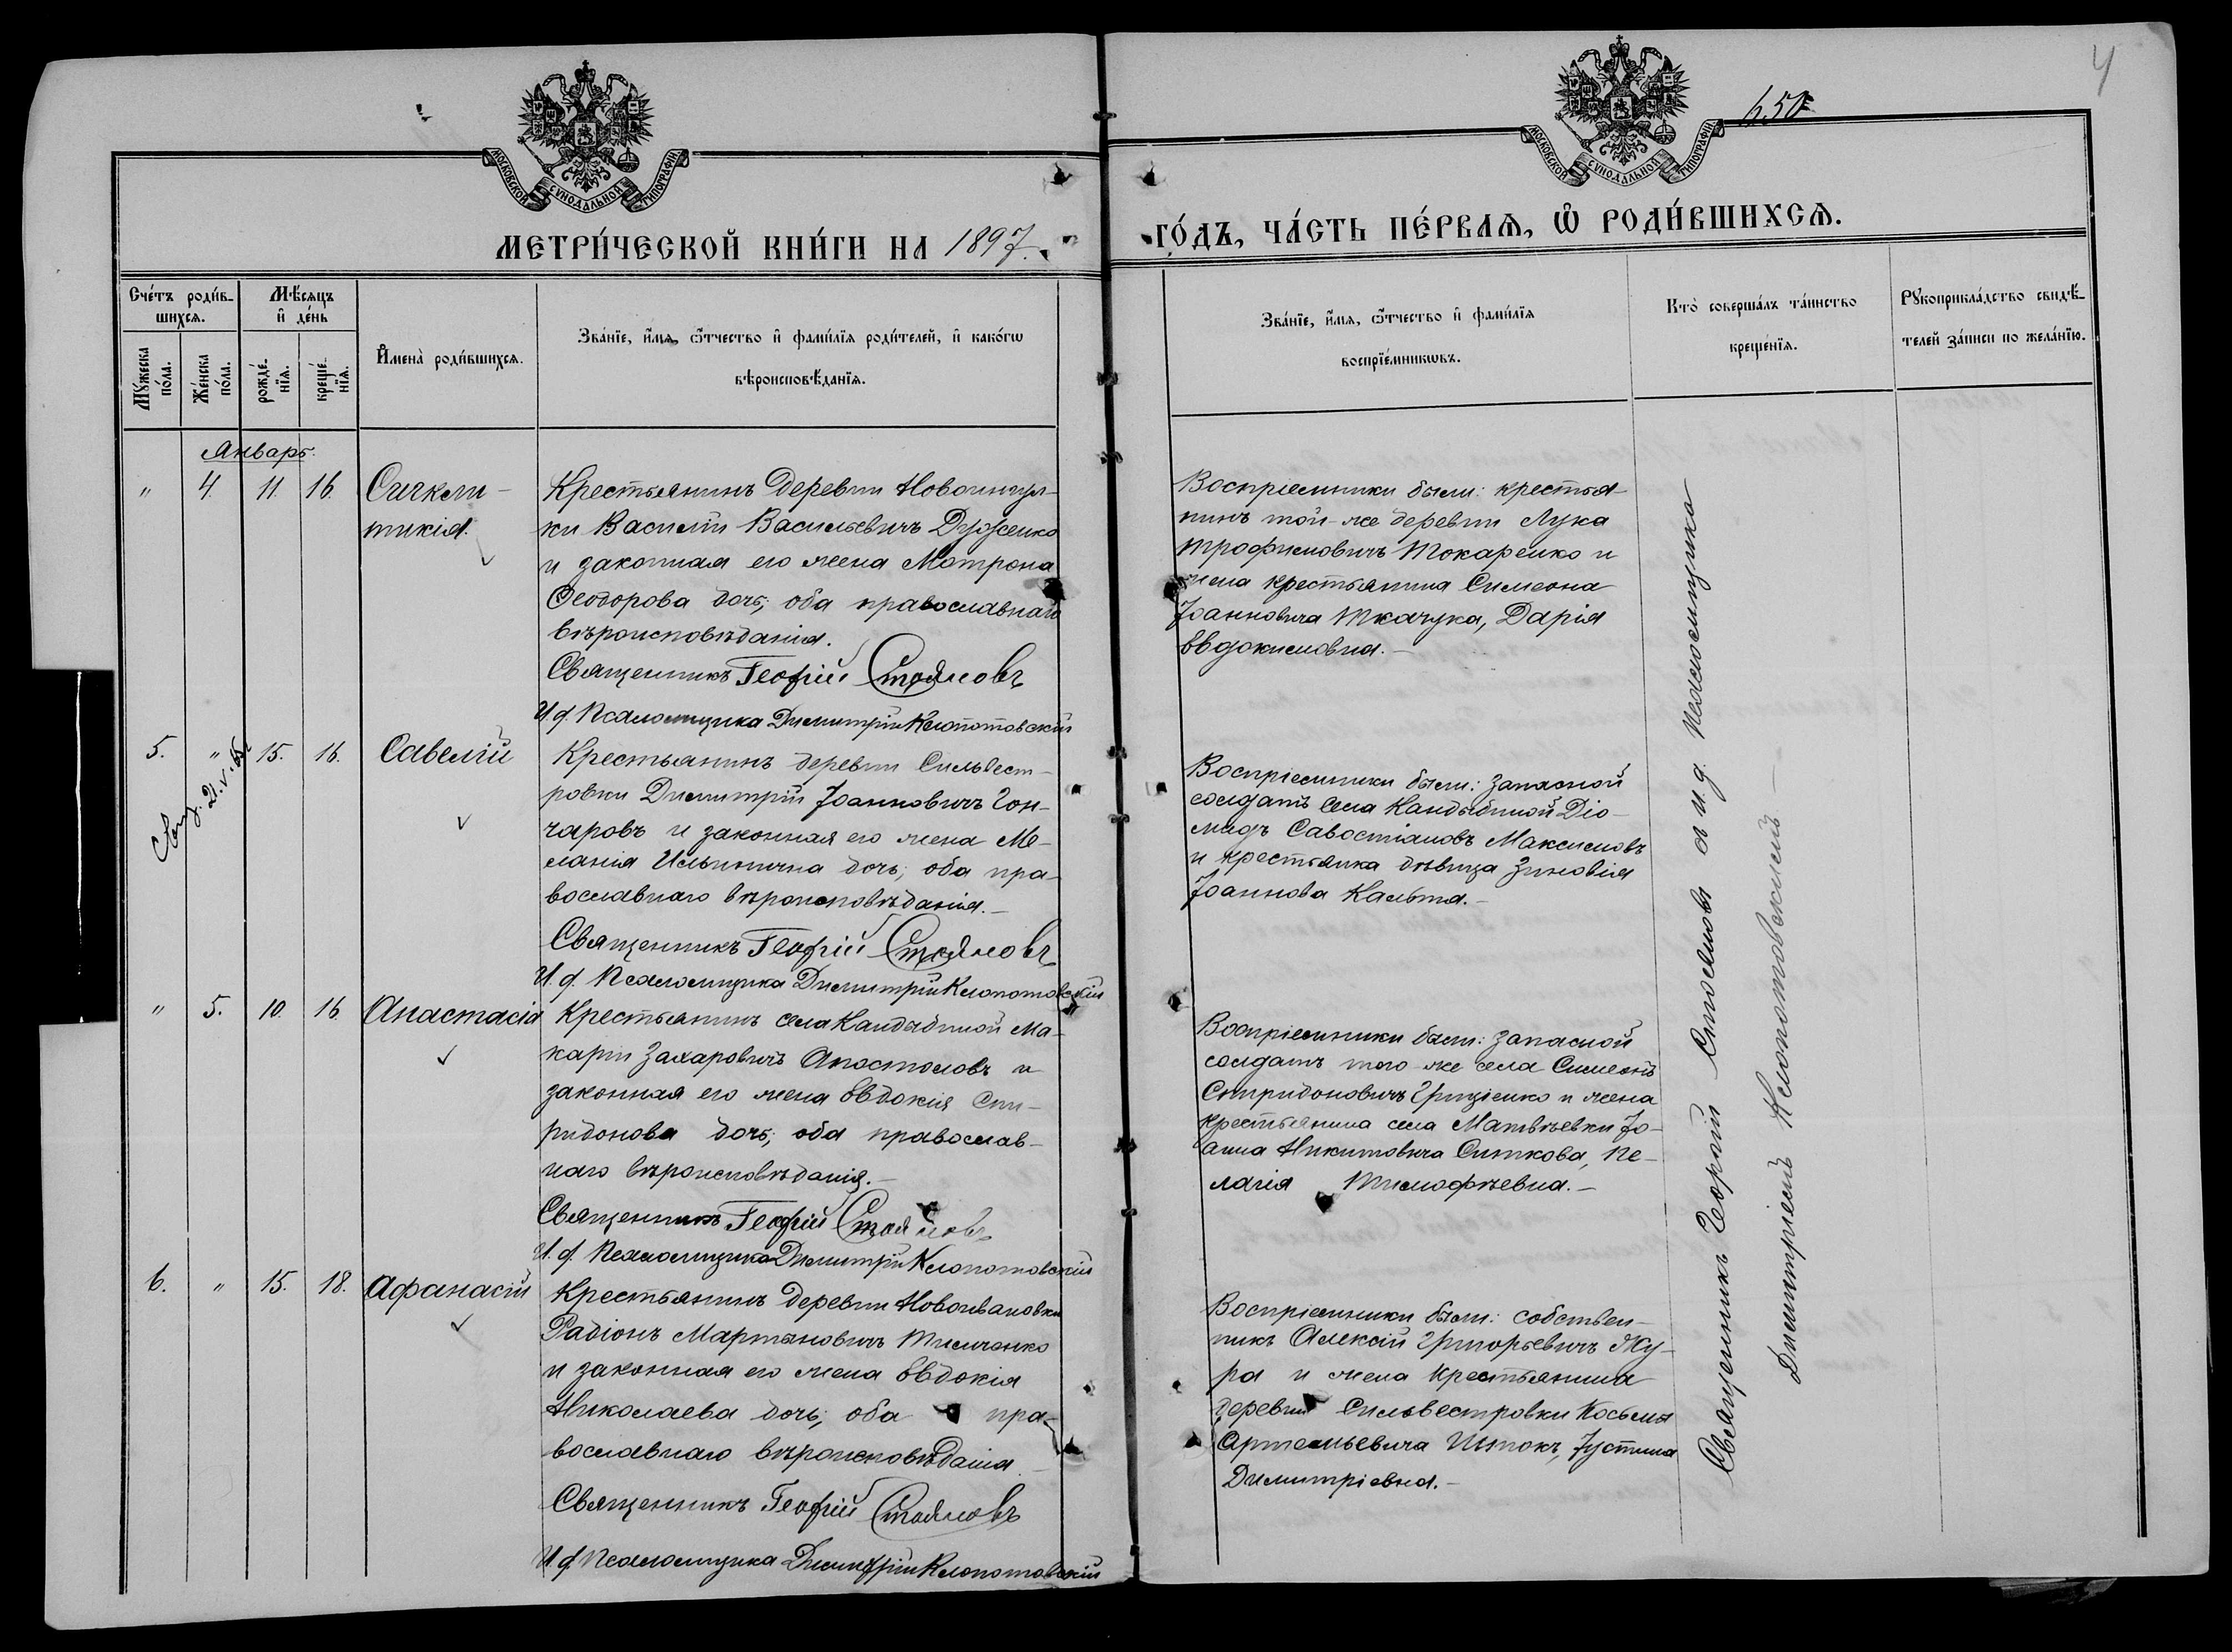 4
650
МОСКОВСКОЙ СУНОДАЛЬНОЙ ТИПОГРАФІИ
МОСКОВСКОЙ СУНОДАЛЬНОЙ ТИПОГРАФІИ
МЕТРИ́ЧЕСКОЙ КНИ́ГИ НА 1897.
ГО́ДЪ, ЧА́СТЬ ПЕ́РВАѦ, Ѽ РОДИ́ВШИХСѦ.
Счéтъ роди́в-
шихсѧ.
Мꙋ́жеска по́ла.
Жéнска по́ла.
Мѣ́сѧцъ
и҆ дéнь
рождé-
нїѧ.
крещé-
нїѧ.
И҆мена̀ роди́вшихсѧ.
Зва́нїе, и҆́мѧ, ѻ҆́тчество и҆ фами́лїѧ роди́телей, и҆ како́гѡ
вѣроисповѣ́данїѧ.
Зва́нїе, и҆́мѧ, ѻ҆́тчество и҆ фами́лїѧ
воспрїе́мникѡвъ.
Кто̀ соверша́лъ та́инство
крещéнїѧ.
Рꙋкоприкла́дство свидѣ́-
телей за́писи по жела́нїю.
Январь.
" 4. 11. 16.
Сигкли-
тикія.
Крестьянинъ деревни
ки Василій Васильевичъ
и законная его жена Матрона
Ѳеодорова дочь; оба православнаго
вѣроисповѣданія.
Священникъ Георгій Стояновъ
И. д. Псаломщика Димитрій Клопотовскій
Воспріемники были: крестья-
нинъ той-же деревни Лука
Трофимовичъ Токаренко и
жена крестьянина Симеона
Іоанновича Ткачука, Дарія
Евдокимовна.-
5. " 15. 16.
21.V.65
Савелій
Крестьянинъ деревни Сильвест-
ровки Димитрій Іоанновичъ Гон-
чаровъ и законная его жена Ме-
ланія Ильинична дочь; оба пра-
вославнаго вѣроисповѣданія.-
Священникъ Георгій Стояновъ
И. д. Псаломщика Димитрій Клопотовскій
Воспріемники были: запасной
солдатъ села Кандыбиной Діо-
мидъ Савостіановъ Максимовъ
и крестьянка дѣвица Зиновія
Іоаннова
" 5. 10. 16.
Анастасія
Крестьянинъ села Кандыбиной Ма-
карій Захаровичъ Апостоловъ и
законная его жена Евдокія Спи-
ридонова дочь; оба православ-
наго вѣроисповѣданія.-
Священникъ Георгій Стояновъ
И. д. Псаломщика Димитрій Клопотовскій
Воспріемники были: запасной
солдатъ того-же села Симеонъ
Спиридоновичъ Гриціенко и жена
крестьянина села Матвѣевки Іо-
анна Никитовича Ситкова, Пе-
лагія Тимофѣевна.-
6. " 15. 18.
Афанасій
Крестьянинъ деревни Новоивановки
Радіонъ Мартыновичъ Тимченко
и законная его жена Евдокія
Николаева дочь; оба пра-
вославнаго вѣроисповѣданія.
Священникъ Георгій Стояновъ
И. д. Псаломщика Димитрій Клопотовскій
Воспріемники были: собствен-
никъ Алексій Григорьевичъ Жу-
ра и жена крестьянина
деревни Сильвестровки Косьмы
Артемьевича Штокъ, Іустина
Димитріевна.-
Священникъ Георгій Стояновъ и и.д. псаломщика
Димитрій Клопотовскій-